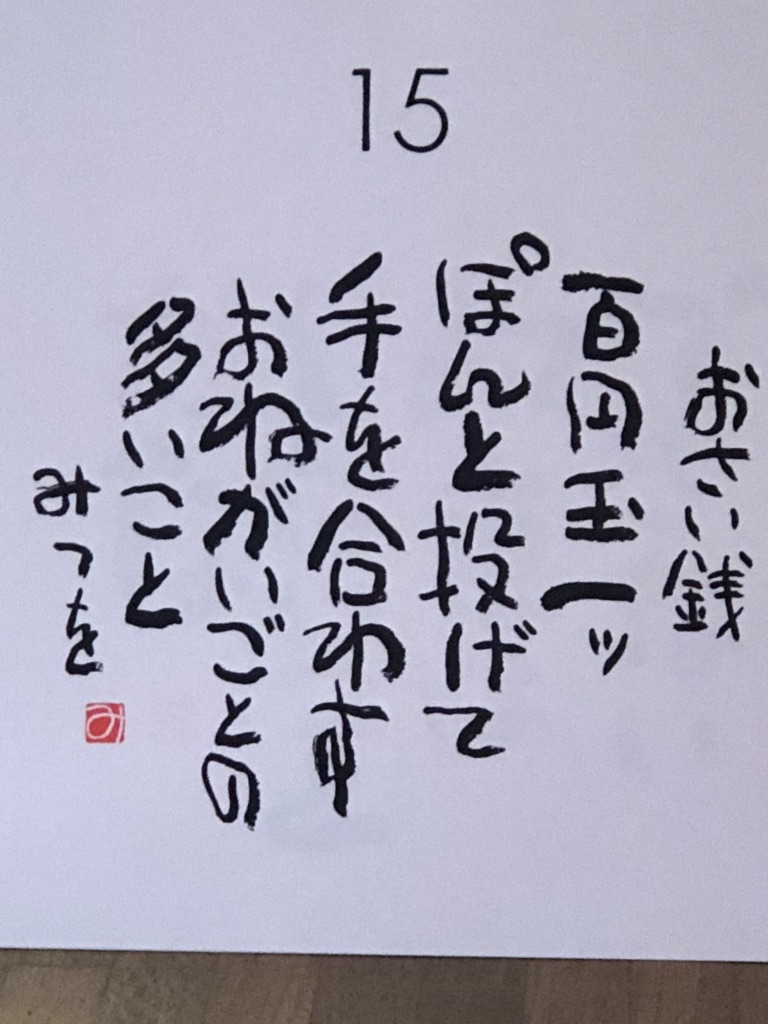 15
おさい銭
百円玉一ッ
ぽんと投げて
手を合わす
おねがいごとの
多いこと
みつを
み